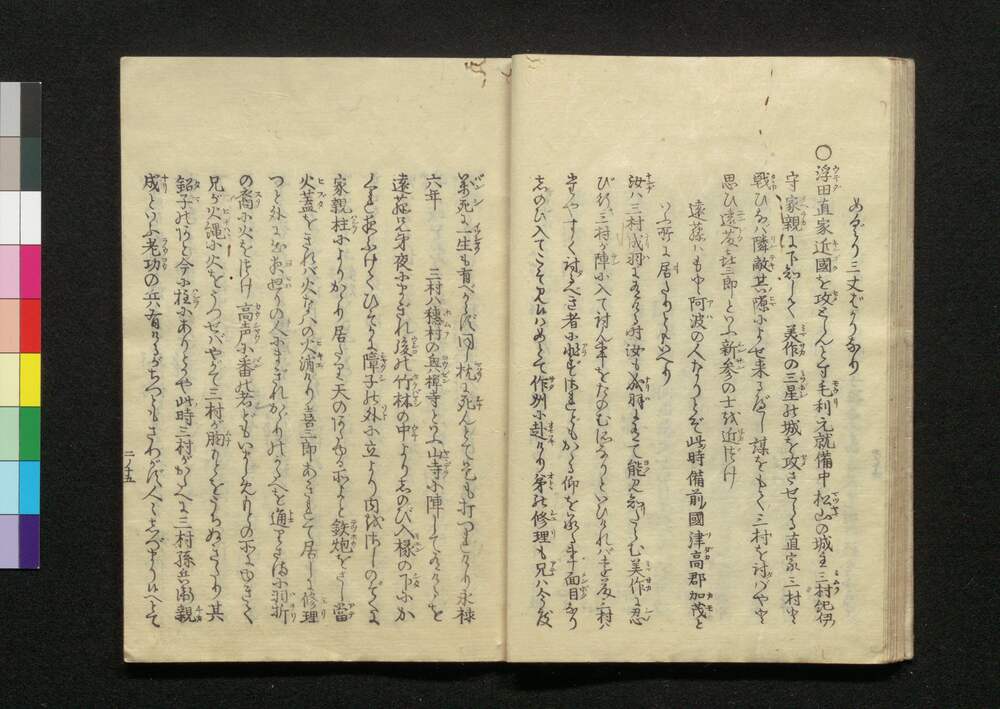 めぐり三丈ばかりあり
〇浮田直家近國を攻とらんとす毛利元就備中松山の城主三村紀伊
守家親に下知して美作の三星の城を攻させらる直家三村と
戦ひなば隣敵其隙によせ来るべし謀をもて三村を討ばやと
思ひ遠藤喜三郎といふ新参の士を近づけ
遠藤はもと阿波の人なりとぞ此時備前國津高郡加茂と
いふ所に居たりといへり
汝は三村成羽にありし時汝も成羽にありて能見知たらむ美作に忍
びて三村が陣に入て討ん事をたのむなりといひければ遠藤三村は
たやすく討べき者に非ずされどもかゝる仰を承る事面目なり
志のび入てこそ見めとて作州に赴けり弟の修理も兄は今度
萬死に一生も有べからず同じ枕に死んとて是も打つれけり永禄
六年 三村は穂村の興禅寺といふ山寺に陣してありけるを
遠藤兄弟夜にまぎれ後の竹林の中より志のび入椽の下にか
くれ夜ふけてひそかに障子の外に立より内をさしのぞくに
家親柱によりかゝり居たり天のあたふる所よと鉄炮をさし當
火蓋をきれば火なはの火消けり喜三郎あきれて居しに修理
つと外に出火をたける人にまぎれかゞりのかたへを通るさまに羽折
の裔に火をつけ高声に番の者どもいましめありとの所にゆきて
兄が火縄に火をうつせばやがて三村が胸もとをうちぬきたり其
鉛子のあと今に柱にありとぞ此時三村がかたへに三村孫兵衛親
成といふ老功の兵有けるがちつともさわがず人々しづまり候へとて
二ノ五